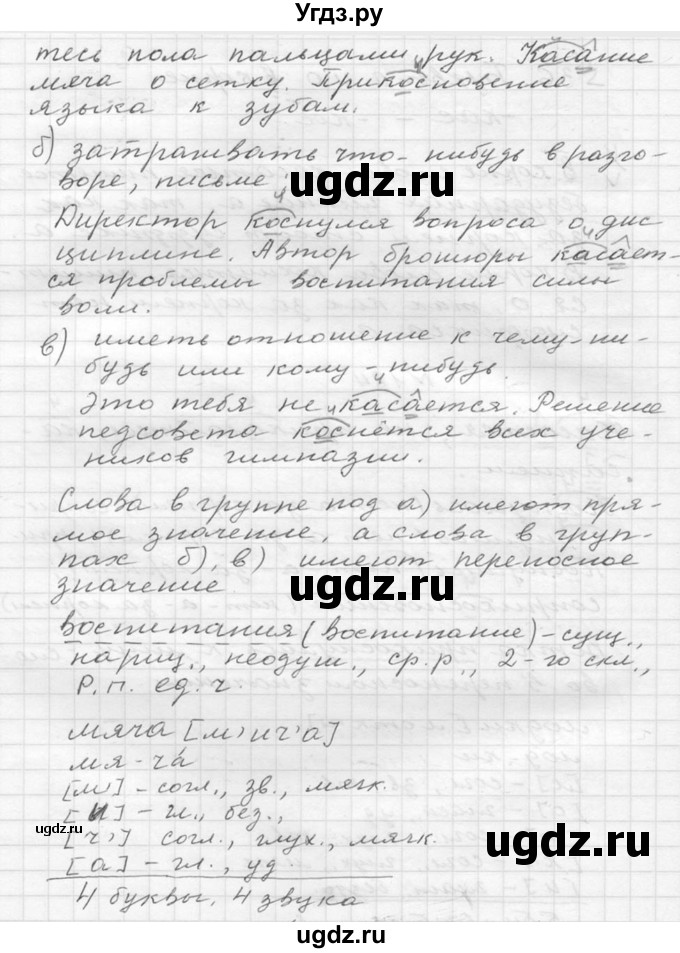 Угдз.ру
тесь пола пальцами рук. Касание
мяча о сетку. Прикосновение
языка к зубам.
б) затрагивать что-нибудь в разго-
воре, письме
ugdz.ru
Директор коснулся вопроса о дис
циплине. Автор брошюры касает-
ся проблемы воспитания силы
воли.
в) иметь отношение к чему-ни-
будь или кому-нибудь.
Это тебя не касается. Решение
педсовета коснётся всех уче-
ников гимназии.
Слова в группе под а) имеют пря-
мое значение, а слова в груп-
пах б), в) имеют переносное
значение
ugdz.ru
воспитания (воспитание) - сущ.,
нариц., неодуш., ср.р., 2-го скл.,
Р.п. ед.ч.
мяча [м'ич'а]
мя-ча́
[м'] - согл., зв., мягк.
[и] - гл., без.,
[ч'] согл., глух., мягк.
[а] - гл., уд.
4 буквы, 4 звука
ugdz.ru
ugdz.ru
ugdz.ru
ugdz.ru